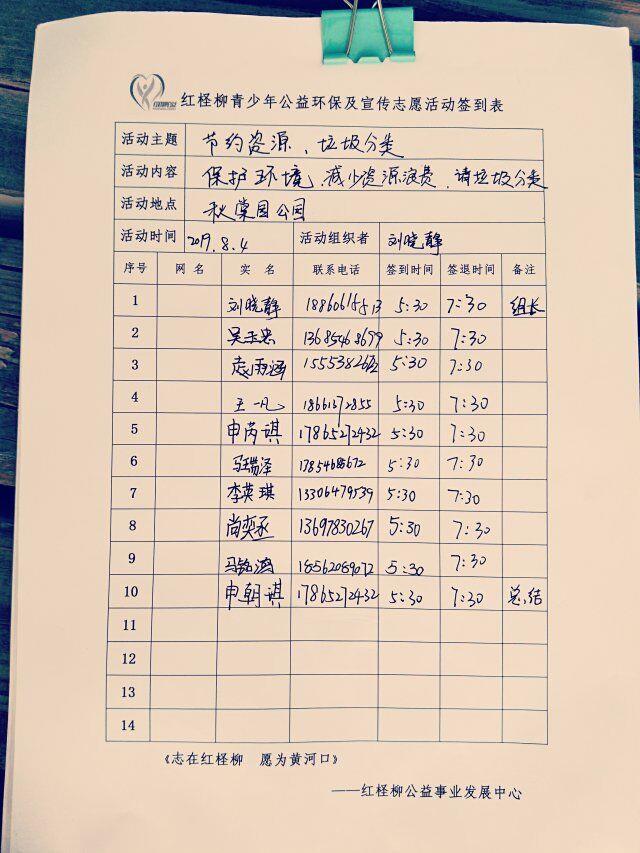 红柽柳青少年公益环保及宣传志愿活动签到表
活动主题 节约资源、垃圾分类
活动内容 保护环境、减少资源浪费,请垃圾分类
活动地点 秋棠园公园
活动时间 2019.8.4 活动组织者 刘晓静
序号 网 名 实 名 联系电话 签到时间 签退时间 备注
1 刘晓静 5:30 7:30 组长
2 吴玉忠 13685468699 5:30 7:30
3 5:30 7:30
4 王一凡 18661372855 5:30 7:30
5 申芮琪 17865272432 5:30 7:30
6 马瑞泽 17854685672 5:30 7:30
7 李英琪 13306479539 5:30 7:30
8 尚奕丞 13697830267 5:30 7:30
9 马铭鸿 18562089072 5:30 7:30
10 申朝琪 17865272432 5:30 7:30 总结
11
12
13
14
《志在红柽柳 愿为黄河口》
——红柽柳公益事业发展中心